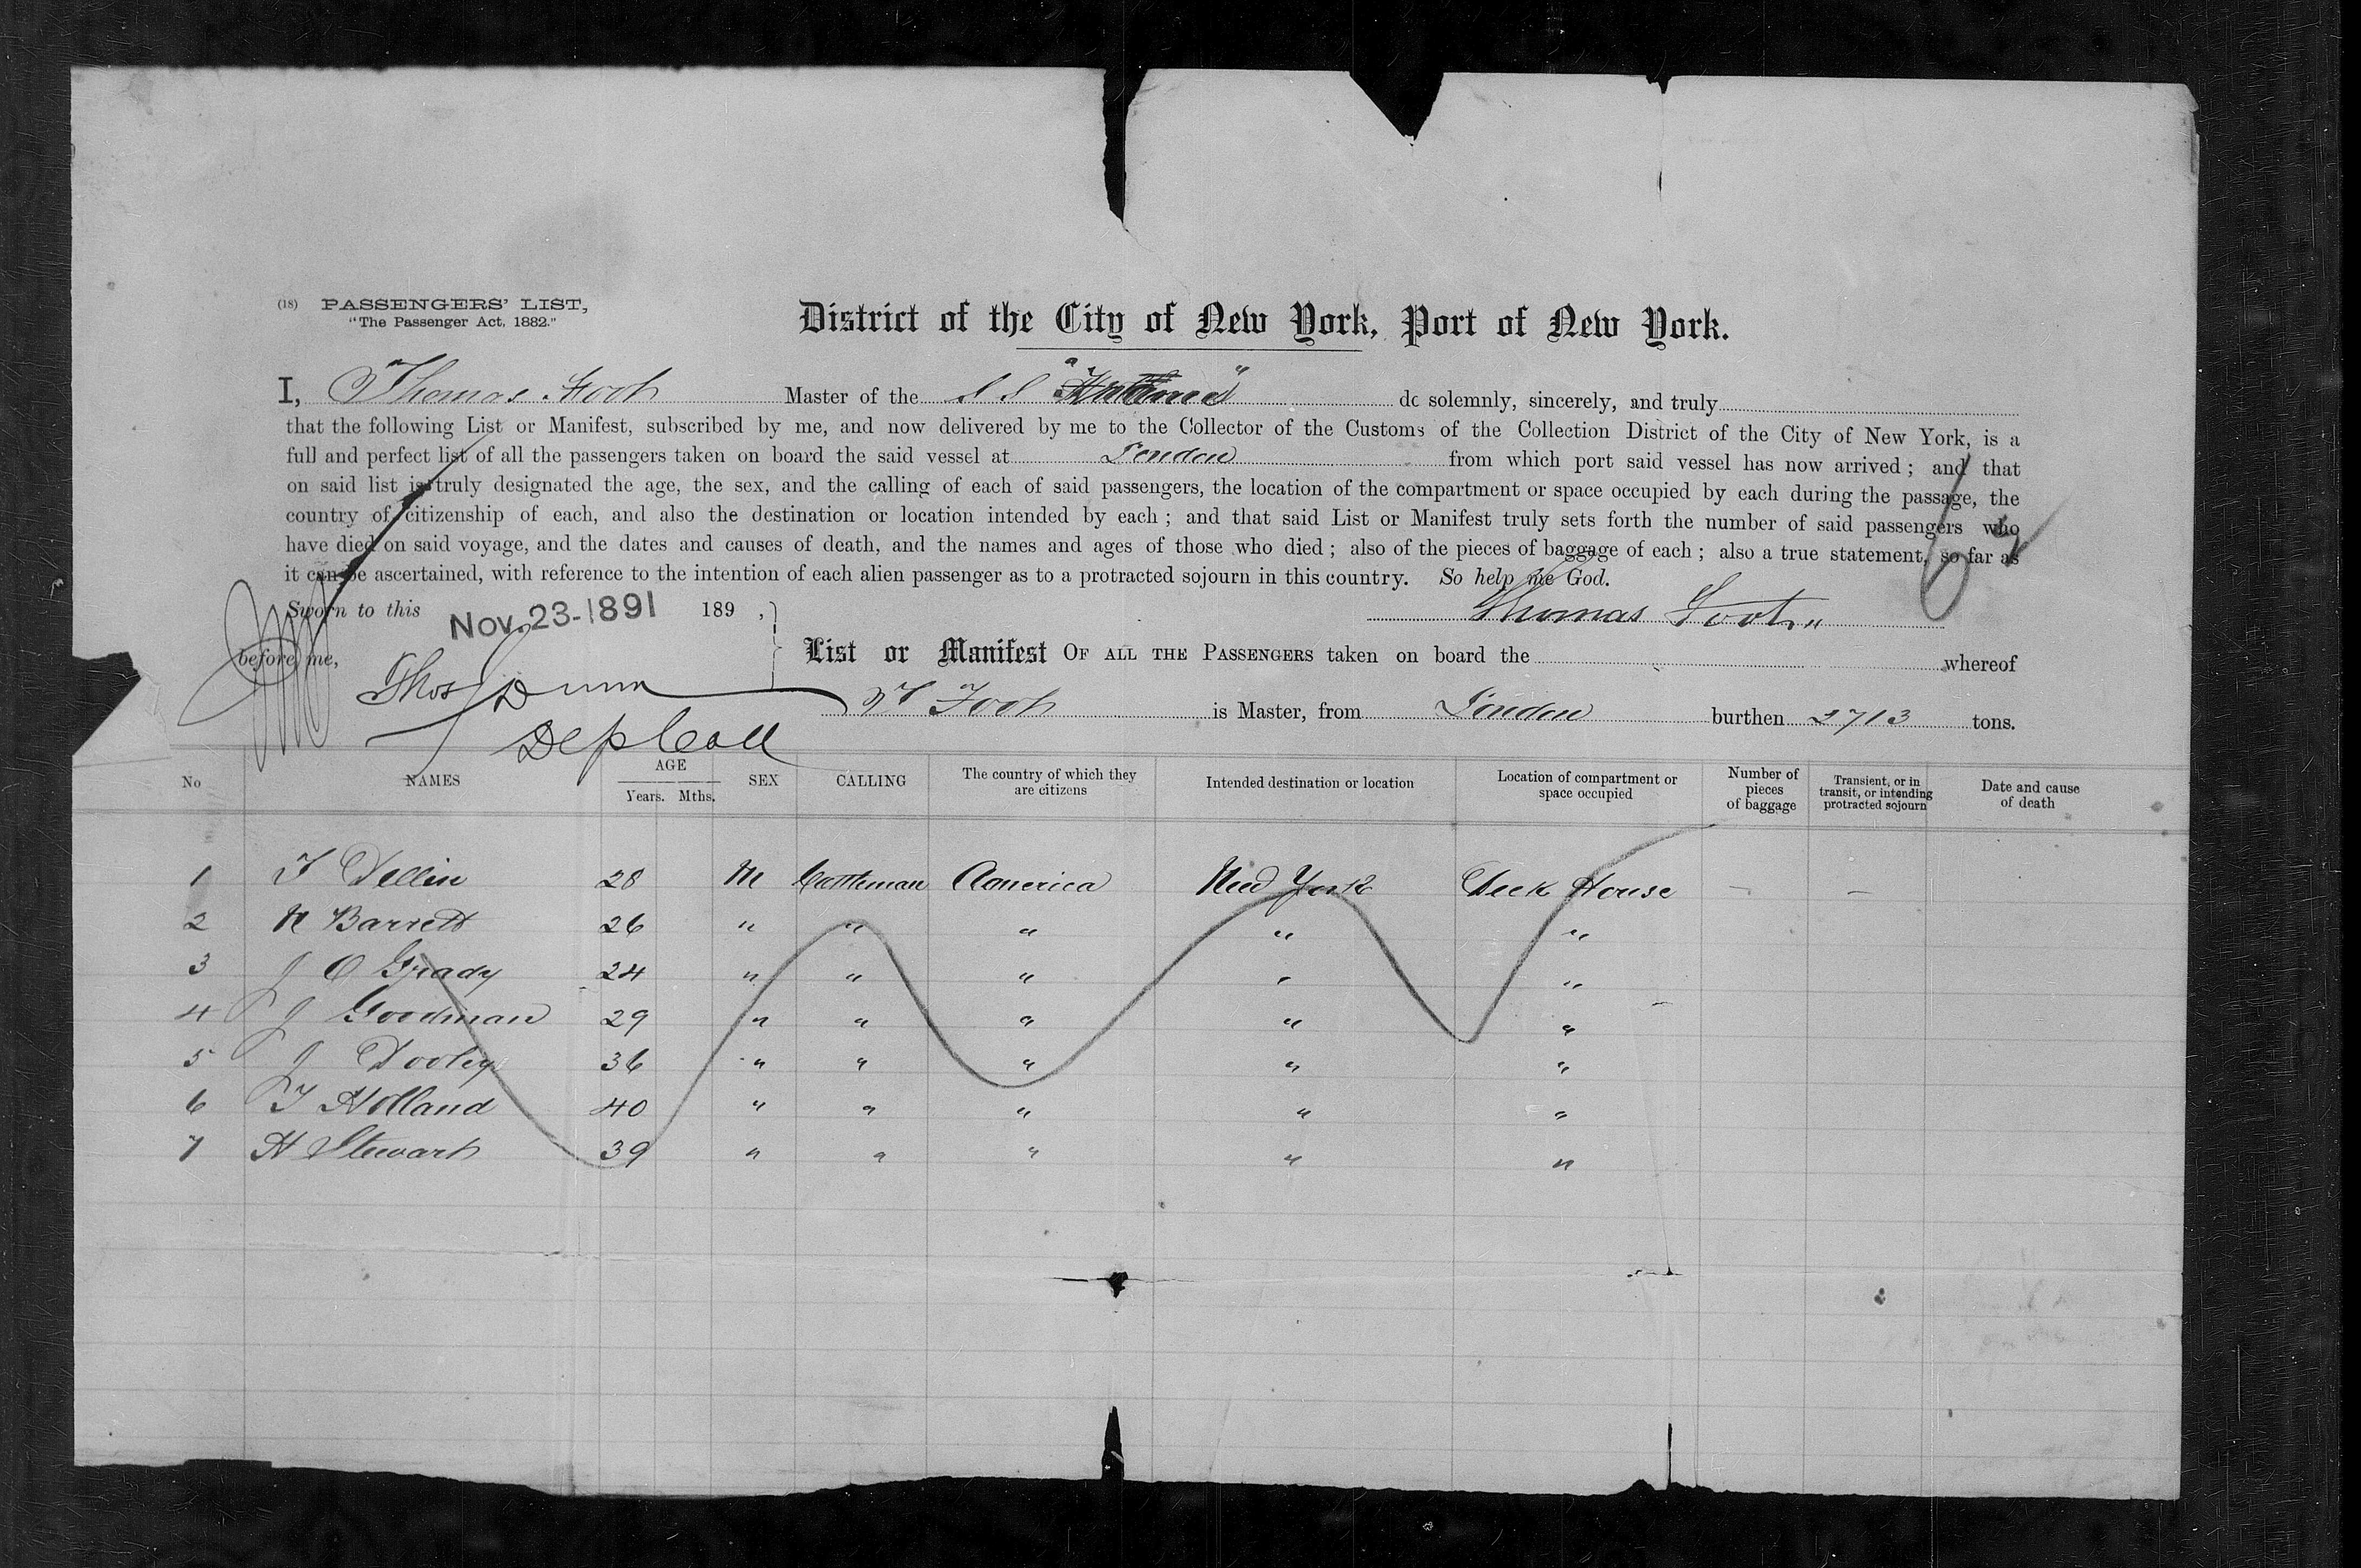 (18) PASSENGERS' LIST,
"The Passenger Act, 1882."
District of the City of New York, Port of New York.
I, Thomas Foot Master of the S S do solemnly, sincerely, and truly
that the following List or Manifest, subscribed by me, and now delivered by me to the Collector of the Customs of the Collection District of the City of New York, is a
full and perfect list of all the passengers taken on board the said vessel at London from which port said vessel has now arrived; and that
on said list is truly designated the age, the sex, and the calling of each of said passengers, the location of the compartment or space occupied by each during the passage, the
country of citizenship of each, and also the destination or location intended by each; and that said List or Manifest truly sets forth the number of said passengers who
have died on said voyage, and the dates and causes of death, and the names and ages of those who died; also of the pieces of baggage of each; also a true statement, so far as
it can be ascertained, with reference to the intention of each alien passenger as to a protracted sojourn in this country. So help me God.
Sworn to this Nov. 23-1891 189 , Thomas Foot
before me, List or Manifest OF ALL THE PASSENGERS taken on board the whereof
Thos Dunn T Foot is Master, from London burthen 2713 tons.
Dep Coll
No NAMES AGE Years. Mths. SEX CALLING The country of which they are citizens Intended destination or location Location of compartment or space occupied Number of pieces of baggage Transient, or in transit, or intending protracted sojourn Date and cause of death
1 T Dellin 28 M Cattleman America New York Deck House — —
2 N Barrett 26 " " " " "
3 J O Grady 24 " " " " "
4 J Goodman 29 " " " " "
5 J Dooley 36 " " " " "
6 T Holland 40 " " " " "
7 H Stewart 39 " " " " "